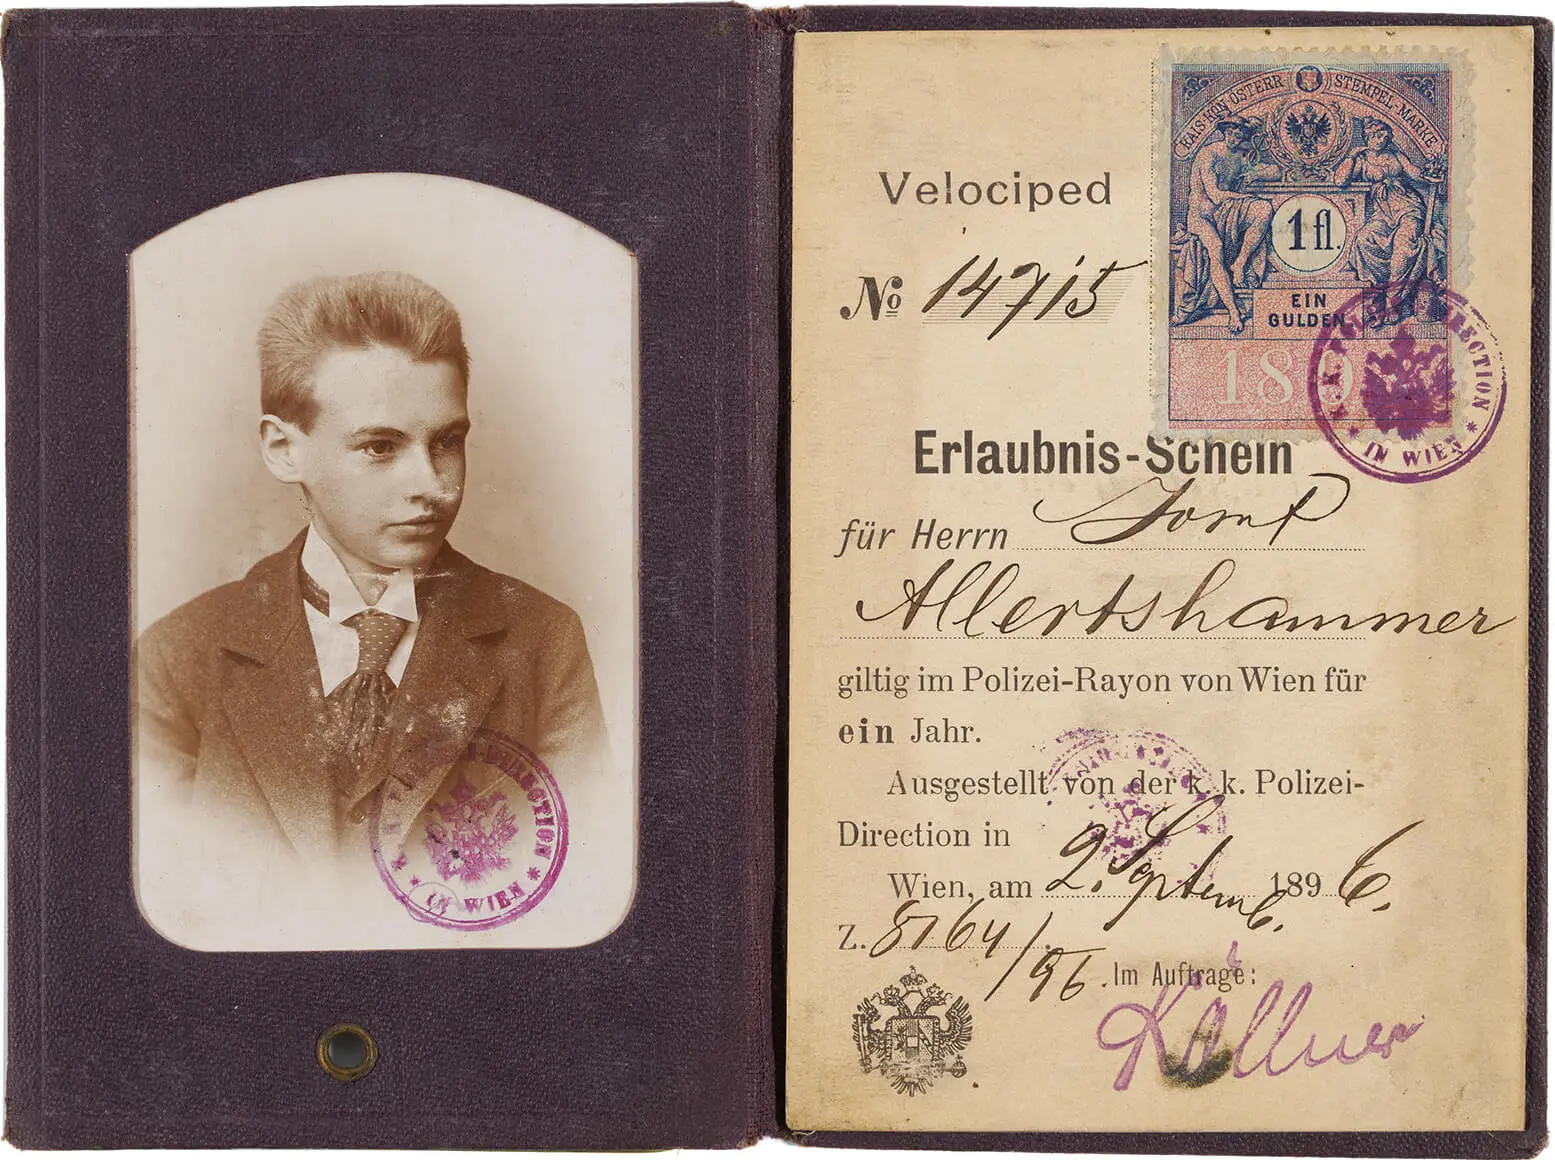 KAIS. KÖN. ÖSTERR. STEMPEL-MARKE
1 fl.
EIN
GULDEN
189
K. K. POLIZEI-DIRECTION
* IN WIEN *
Velociped
No 14715
Erlaubnis-Schein
für Herrn Josef
Allertshammer
giltig im Polizei-Rayon von Wien für
ein Jahr.
Ausgestellt von der k. k. Polizei-
Direction in
Wien, am 2. Septemb. 1896.
Z. 8164/96. Im Auftrage:
Köllner
K. K. POLIZEI-DIRECTION
* IN WIEN *